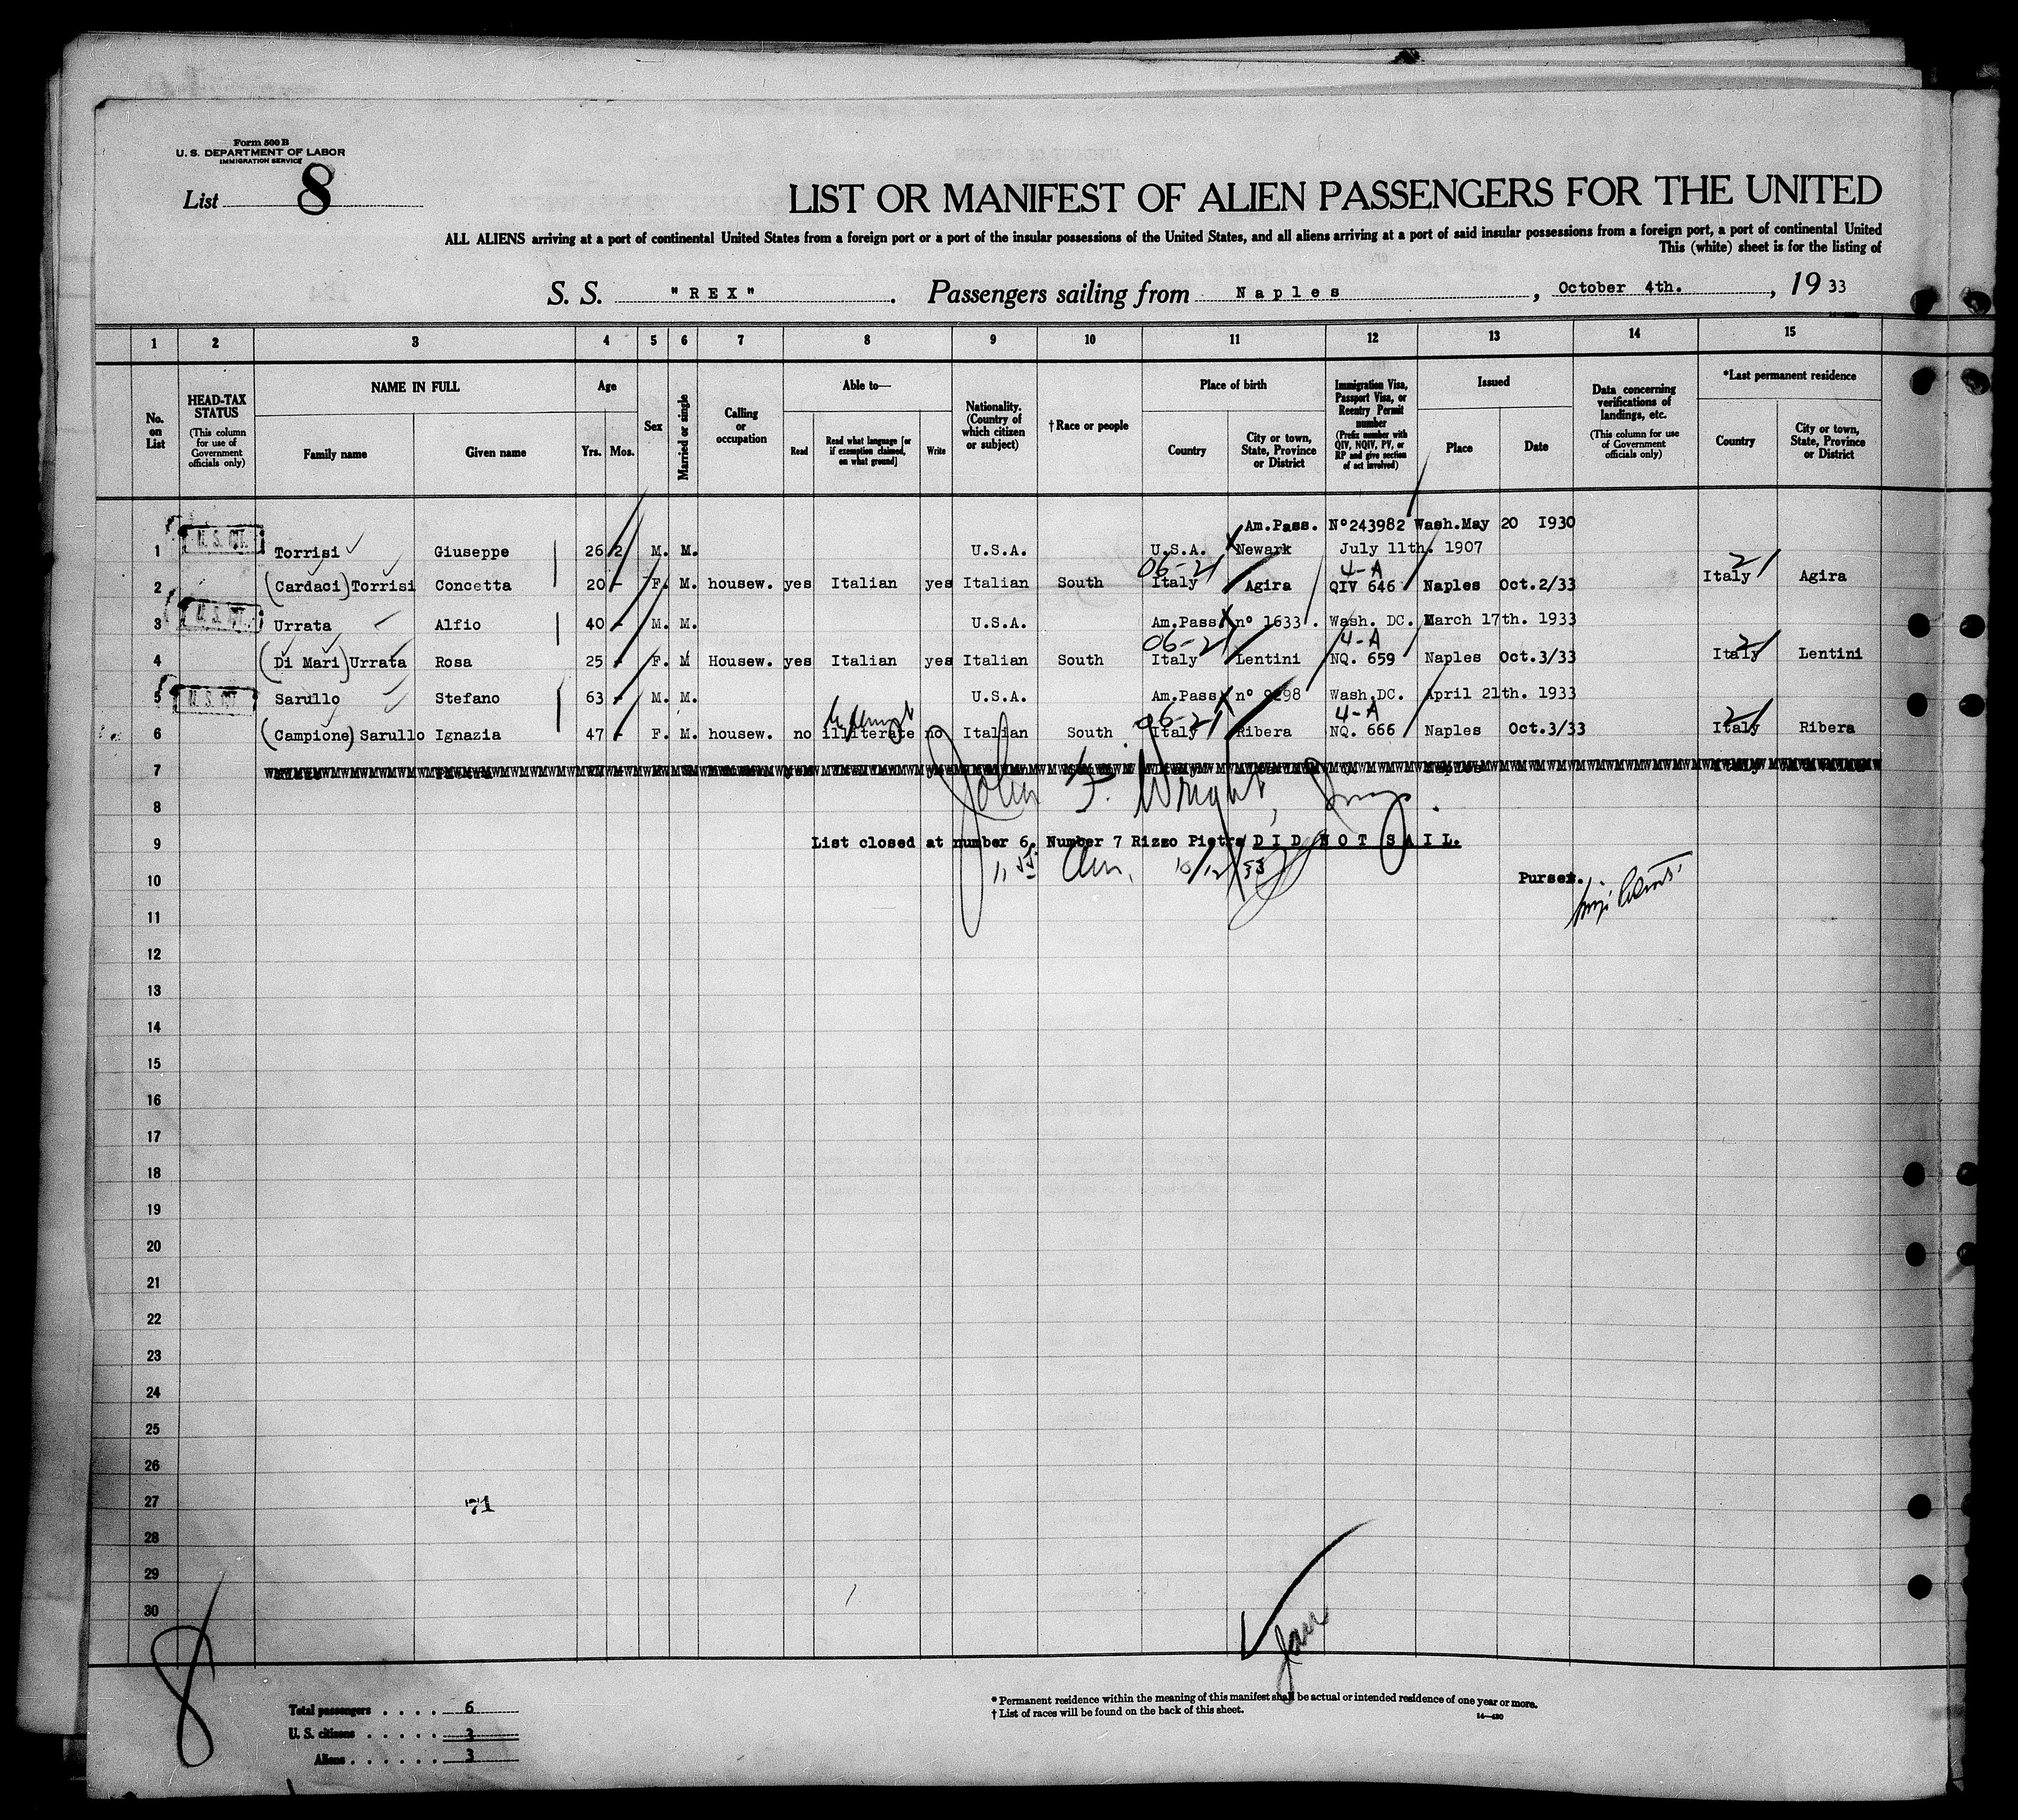 Form 500 B
U. S. DEPARTMENT OF LABOR
IMMIGRATION SERVICE
List 8
LIST OR MANIFEST OF ALIEN PASSENGERS FOR THE UNITED
ALL ALIENS arriving at a port of continental United States from a foreign port or a port of the insular possessions of the United States, and all aliens arriving at a port of said insular possessions from a foreign port, a port of continental United
This (white) sheet is for the listing of
S. S. "REX". Passengers sailing from Naples, October 4th., 1933
1 2 3 4 5 6 7 8 9 10 11 12 13 14 15
No. on List
HEAD-TAX STATUS (This column for use of Government officials only)
NAME IN FULL
Family name Given name
Age
Yrs. Mos.
Sex
Married or single
Calling or occupation
Able to—
Read Read what language [or if exemption claimed, on what ground] Write
Nationality. (Country of which citizen or subject)
† Race or people
Place of birth
Country City or town, State, Province or District
Immigration Visa, Passport Visa, or Reentry Permit number (Prefix number with QIV, NQIV, PV, or RP and give section of act involved)
Issued
Place Date
Data concerning verifications of landings, etc. (This column for use of Government officials only)
*Last permanent residence
Country City or town, State, Province or District
Am.Pass. Nº243982 Wash.May 20 1930
1 U.S. CIT. Torrisi Giuseppe 26 2 M. M. U.S.A. U.S.A. X Newark July 11th. 1907
06-21 4-A 21
2 (Cardaci) Torrisi Concetta 20 - F. M. housew. yes Italian yes Italian South Italy Agira QIV 646 Naples Oct.2/33 Italy Agira
3 U.S. CIT. Urrata Alfio 40 - M. M. U.S.A. Am.Pass X nº 1633. Wash. DC. March 17th. 1933
06-21 4-A 21
4 (Di Mari) Urrata Rosa 25 - F. M Housew. yes Italian yes Italian South Italy Lentini NQ. 659 Naples Oct.3/33 Italy Lentini
5 U.S. CIT. Sarullo Stefano 63 - M. M. U.S.A. Am.Pass X nº 9298 Wash DC. April 21th. 1933
06-21 4-A 21
6 (Campione) Sarullo Ignazia 47 - F. M. housew. no illiterate no Italian South Italy Ribera NQ. 666 Naples Oct.3/33 Italy Ribera
7
John F. Wright, Insp.
8
9 List closed at number 6. Number 7 Rizzo Pietra DID NOT SAIL.
10/12/33
10 Purser.
11
12
13
14
15
16
17
18
19
20
21
22
23
24
25
26
27 71
28
29
30
8
Total passengers . . . . 6
U. S. citizens . . . . . 3
Aliens . . . . . . 3
* Permanent residence within the meaning of this manifest shall be actual or intended residence of one year or more.
† List of races will be found on the back of this sheet.
14—430